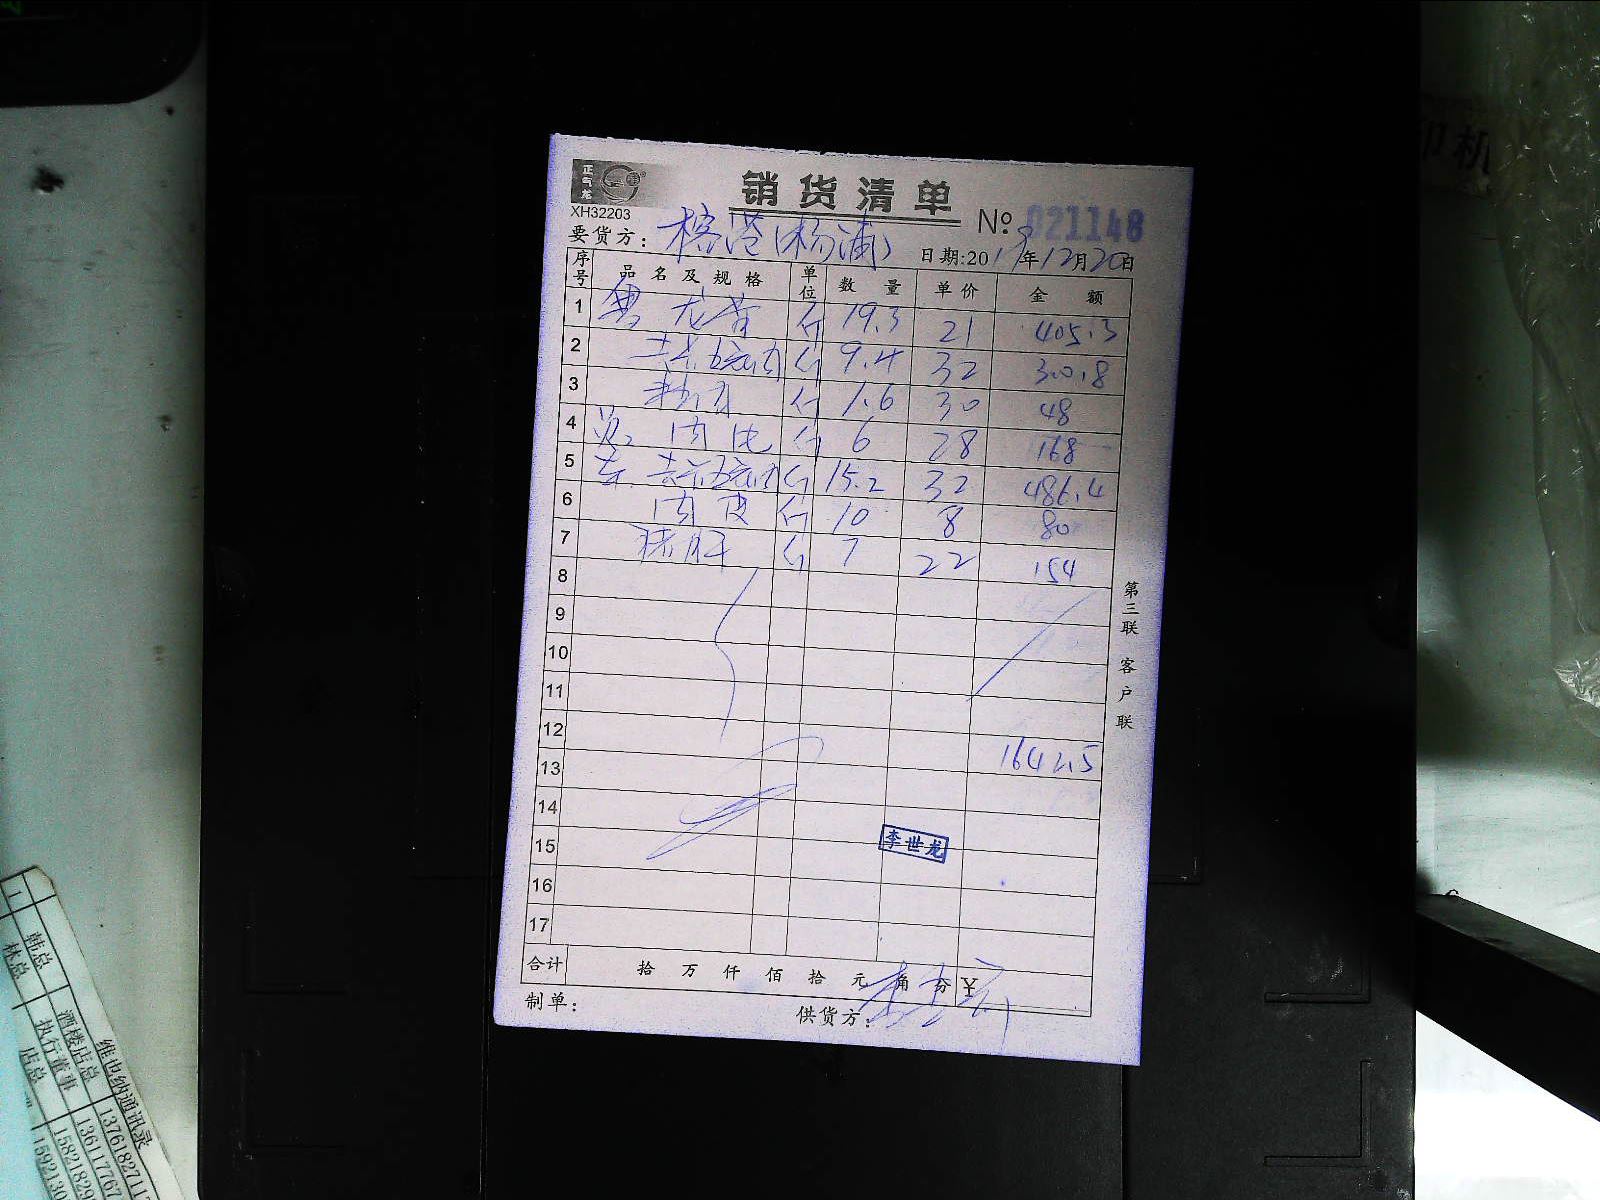 正气龙
销货清单
XH32203
No. 021148
要货方: 榕港(杨浦)
日期:2019年12月20日
序号 品名及规格 单位 数量 单价 金额
1 龙骨 斤 19.3 21 405.3
2 斤 9.4 32 300.8
3 斤 1.6 30 48
4 斤 6 28 168
5 斤 15.2 32 486.4
6 肉皮 斤 10 8 80
7 猪肝 斤 7 22 154
8
9
10
11
12 1642.5
13
14
15 李世龙
16
17
合计 拾 万 仟 佰 拾 元 角 分 ¥
制单:
供货方:
第三联 客户联
印机
维也纳通讯录
1
韩总 酒楼店总 1376182711
林总 执行董事 13611776
店总 1582182
1592130